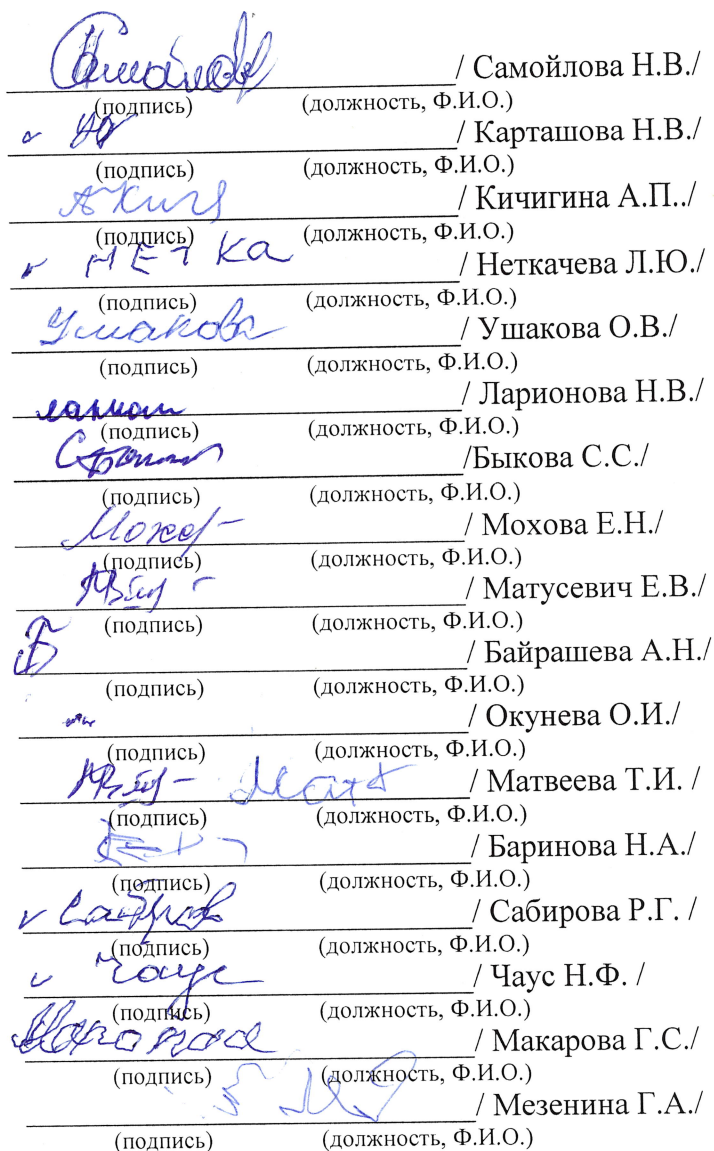 Самойлова / Самойлова Н.В./
(подпись) (должность, Ф.И.О.)
/ Карташова Н.В./
(подпись) (должность, Ф.И.О.)
/ Кичигина А.П../
(подпись) (должность, Ф.И.О.)
НЕТКа / Неткачева Л.Ю./
(подпись) (должность, Ф.И.О.)
Ушакова / Ушакова О.В./
(подпись) (должность, Ф.И.О.)
/ Ларионова Н.В./
(подпись) (должность, Ф.И.О.)
/Быкова С.С./
(подпись) (должность, Ф.И.О.)
/ Мохова Е.Н./
(подпись) (должность, Ф.И.О.)
/ Матусевич Е.В./
(подпись) (должность, Ф.И.О.)
Б / Байрашева А.Н./
(подпись) (должность, Ф.И.О.)
/ Окунева О.И./
(подпись) (должность, Ф.И.О.)
/ Матвеева Т.И. /
(подпись) (должность, Ф.И.О.)
/ Баринова Н.А./
(подпись) (должность, Ф.И.О.)
/ Сабирова Р.Г. /
(подпись) (должность, Ф.И.О.)
Чаус / Чаус Н.Ф. /
(подпись) (должность, Ф.И.О.)
/ Макарова Г.С./
(подпись) (должность, Ф.И.О.)
/ Мезенина Г.А./
(подпись) (должность, Ф.И.О.)